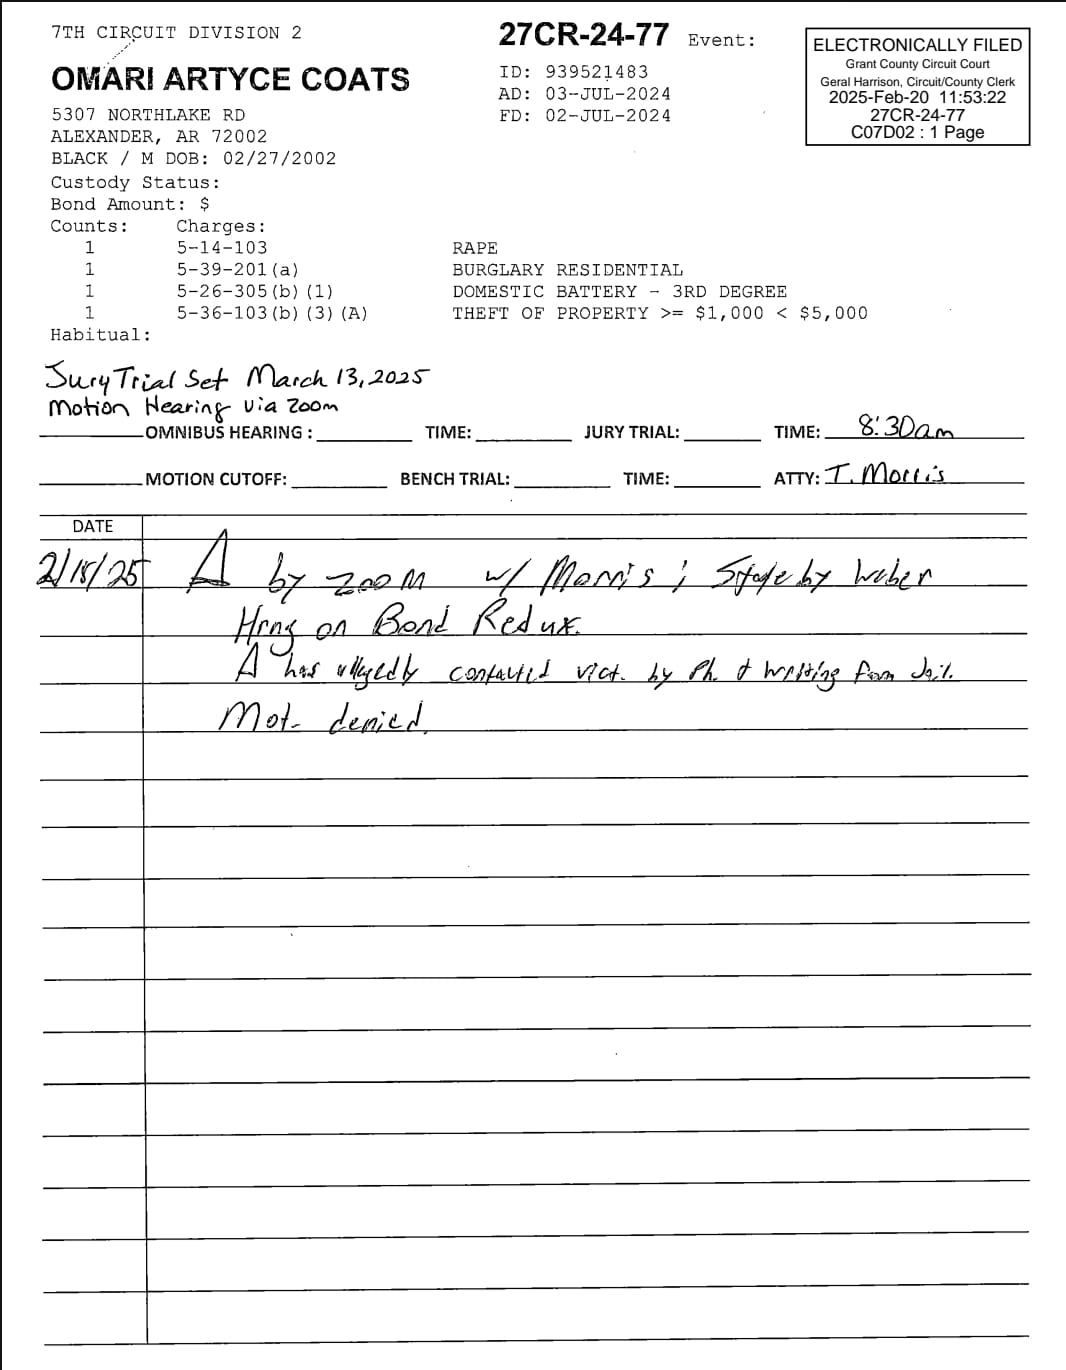 7TH CIRCUIT DIVISION 2
27CR-24-77 Event:
ELECTRONICALLY FILED
Grant County Circuit Court
Geral Harrison, Circuit/County Clerk
2025-Feb-20 11:53:22
27CR-24-77
C07D02 : 1 Page
OMARI ARTYCE COATS
ID: 939521483
AD: 03-JUL-2024
FD: 02-JUL-2024
5307 NORTHLAKE RD
ALEXANDER, AR 72002
BLACK / M DOB: 02/27/2002
Custody Status:
Bond Amount: $
Counts: Charges:
1 5-14-103 RAPE
1 5-39-201(a) BURGLARY RESIDENTIAL
1 5-26-305(b)(1) DOMESTIC BATTERY - 3RD DEGREE
1 5-36-103(b)(3)(A) THEFT OF PROPERTY >= $1,000 < $5,000
Habitual:
Jury Trial Set March 13, 2025
Motion Hearing via Zoom
OMNIBUS HEARING : TIME: JURY TRIAL: TIME: 8:30am
MOTION CUTOFF: BENCH TRIAL: TIME: ATTY: T. Morris
DATE
2/18/25 Δ by zoom w/ Morris ; State by Weber
Hrng on Bond Redux.
Δ has allegedly contacted vict. by Ph. & writing from Jail.
Mot. denied.